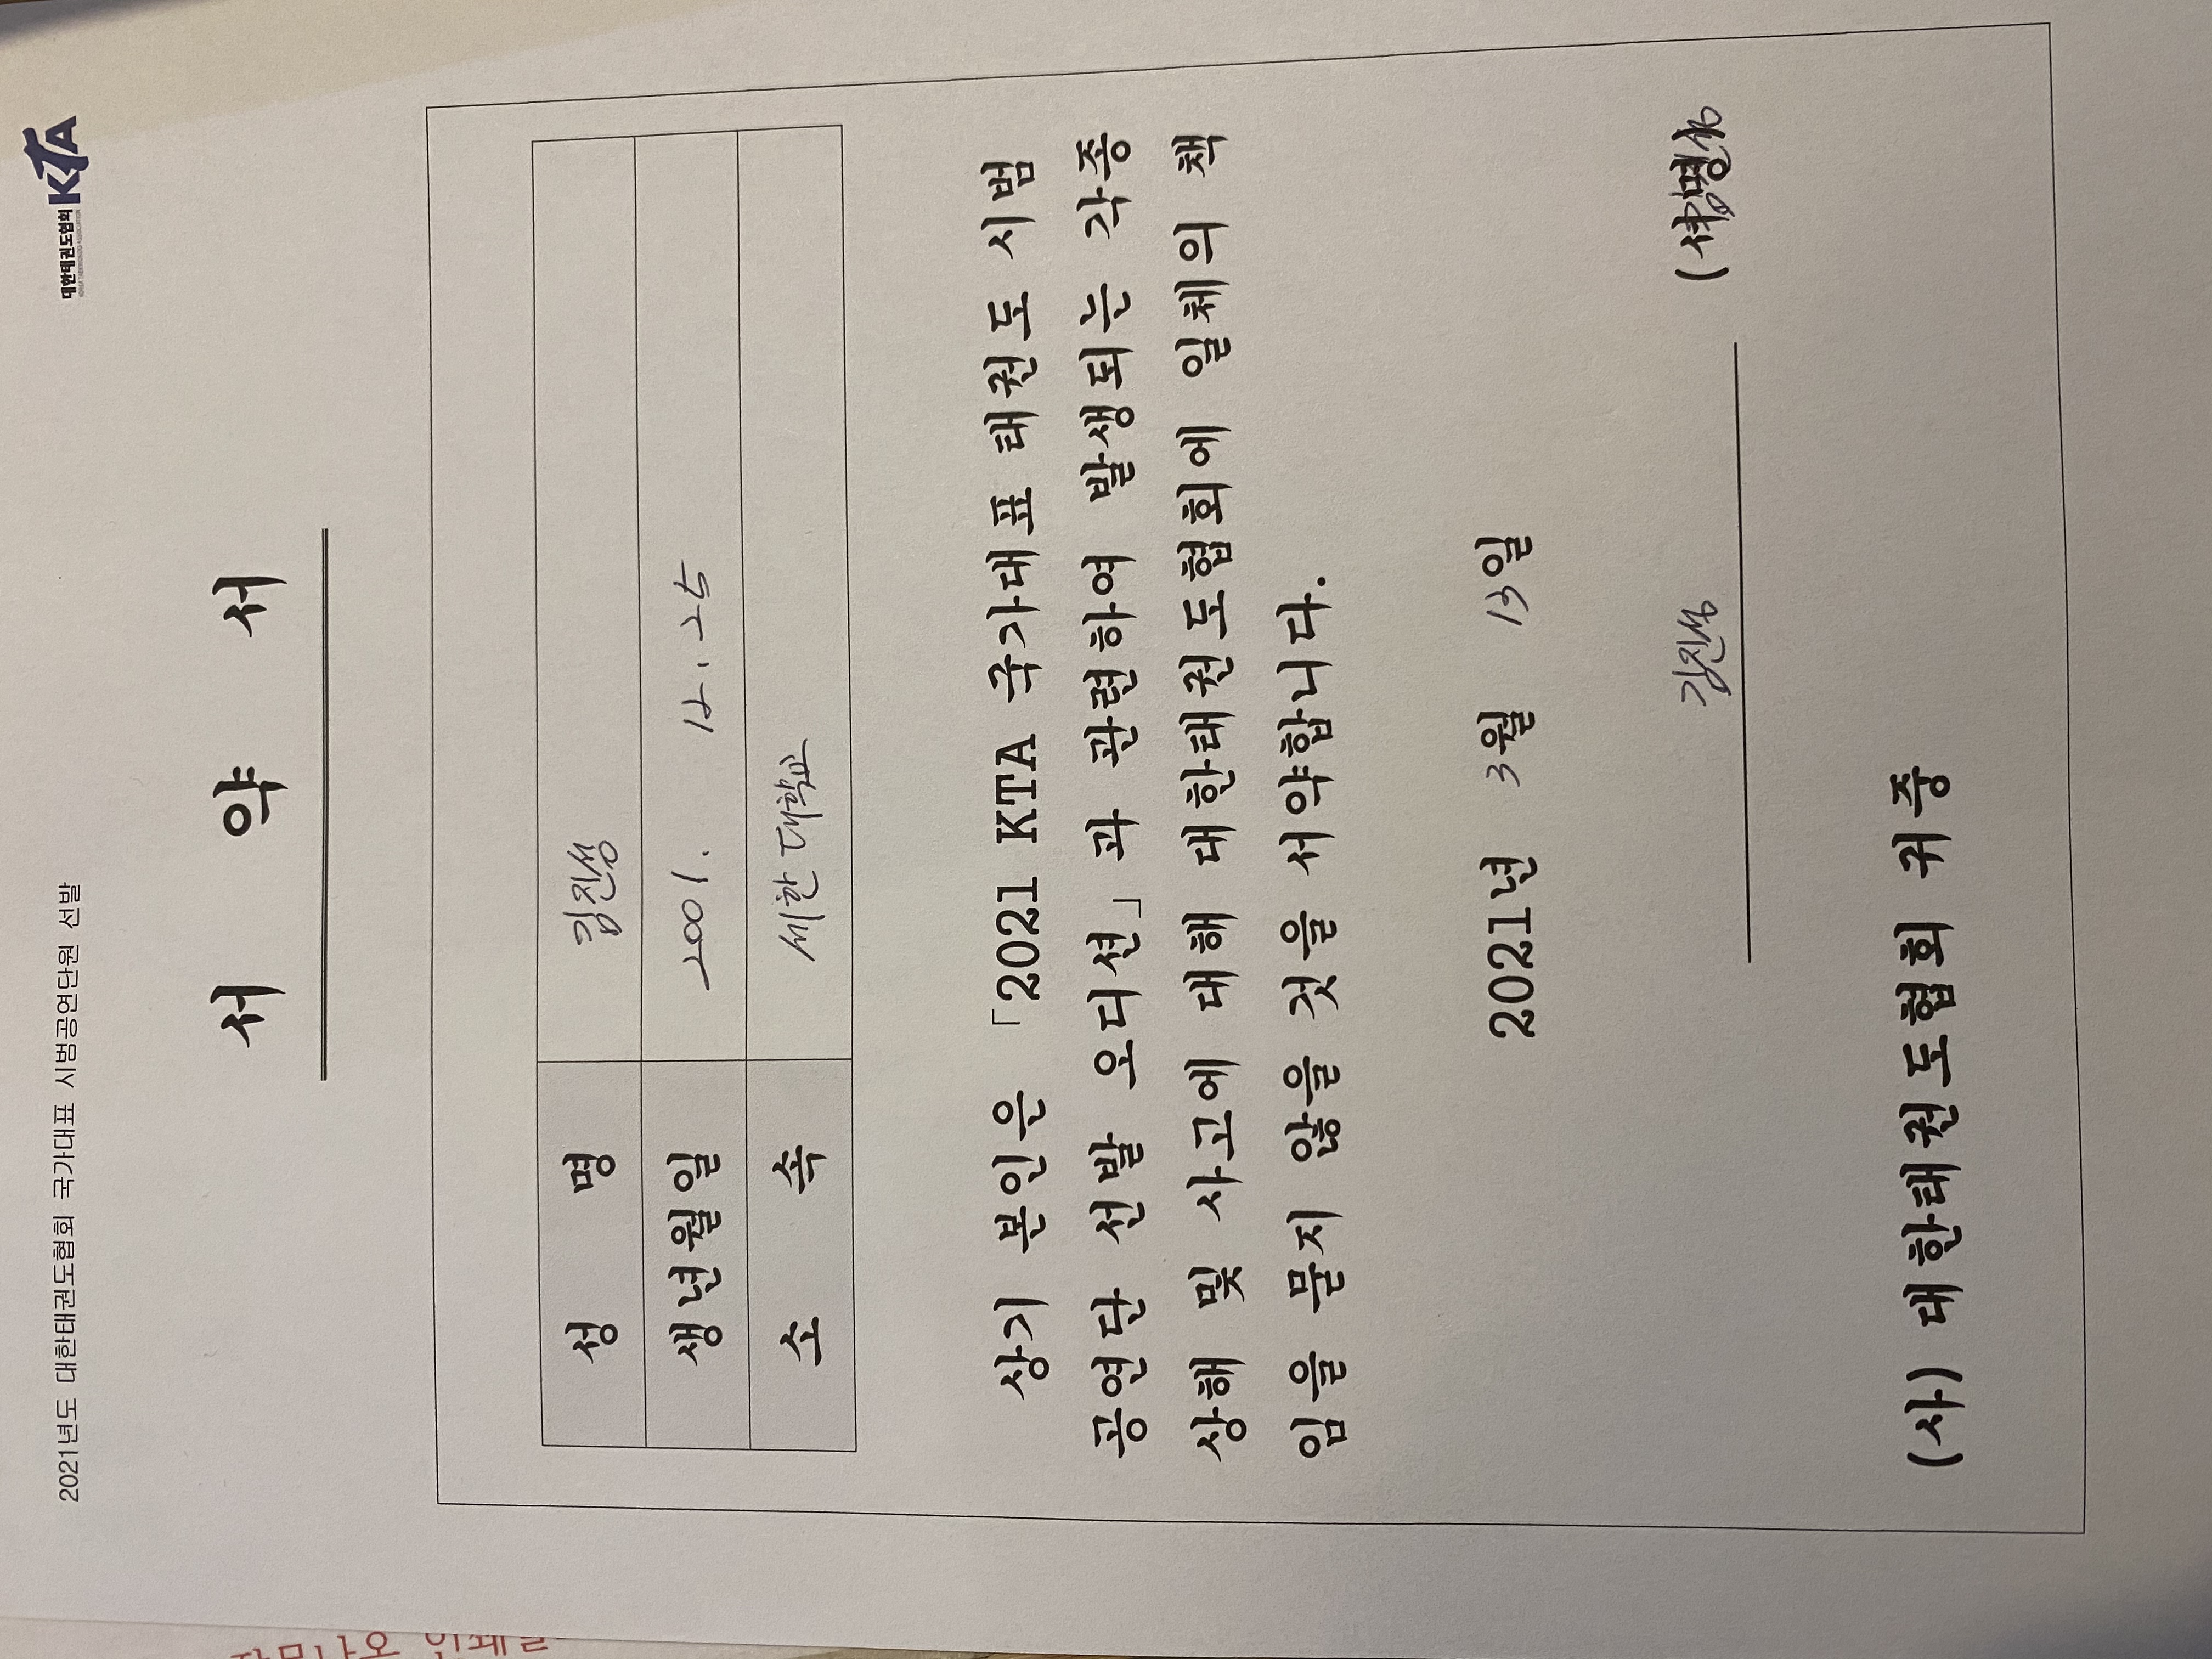 2021년도 대한태권도협회 국가대표 시범공연단원 선발
대한태권도협회 KTA
서 약 서
성 명 김진성
생년월일 2001. 12. 25
소 속 세한대학교
상기 본인은 「2021 KTA 국가대표 태권도 시범
공연단 선발 오디션」과 관련하여 발생되는 각종
상해 및 사고에 대해 대한태권도협회에 일체의 책
임을 묻지 않을 것을 서약합니다.
2021년 3월 13일
김진성 (서명)
(사) 대한태권도협회 귀중